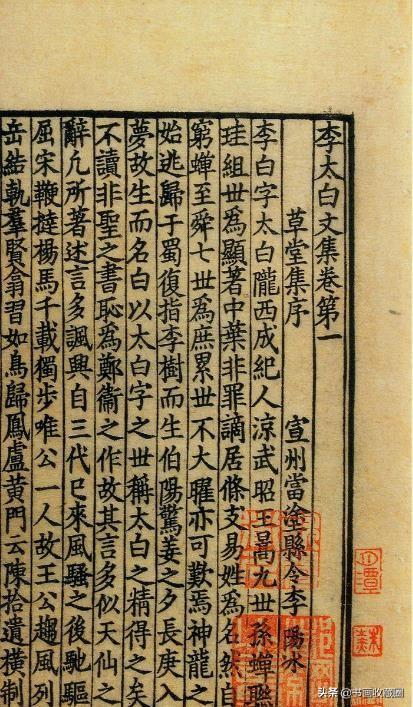 李太白文集卷第一
草堂集序 宣州當塗縣令李陽冰
李白字太白隴西成紀人涼武昭王暠九世孫蟬聮
珪組世爲顯著中葉非罪謫居條支易姓爲名然自
窮蟬至舜七世爲庶累世不大曜亦可歎焉神龍之
始逃歸于蜀復指李樹而生伯陽驚姜之夕長庚入
夢故生而名白以太白字之世稱太白之精得之矣
不讀非聖之書恥爲鄭衞之作故其言多似天仙之
辭凡所著述言多諷興自三代已來風騷之後馳驅
屈宋鞭撻楊馬千載獨步唯公一人故王公趨風列
岳結軌羣賢翕習如鳥歸鳳盧黃門云陳拾遺橫制
头条 @书画收藏圈